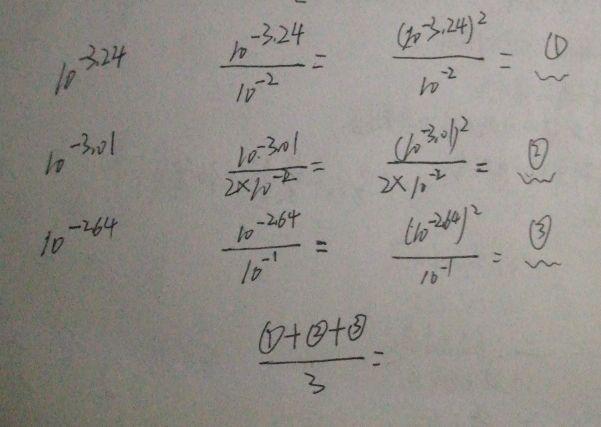 10^-3.24  10^-3.24/10^-2 =  (10^-3.24)^2/10^-2 = ①
10^-3.01  10^-3.01/2×10^-2 =  (10^-3.01)^2/2×10^-2 = ②
10^-2.64  10^-2.64/10^-1 =  (10^-2.64)^2/10^-1 = ③
①+②+③/3 =